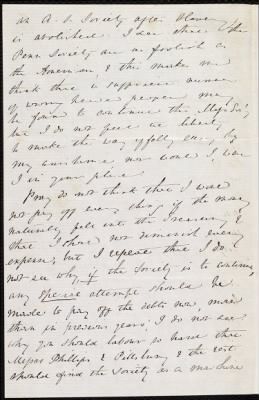 an A. S. Society after Slavery
is abolished. I see that the
Penn Society are as foolish as
the American, & this makes me
think that a sufficient number
of wrong headed people may
be found to continue the Mass. So'y,
but I do not feel at liberty
to make the way of folly easy by
my assistance nor would I were
I in your place.
Pray do not think that I would
not pay off every thing if the money
naturally fell into the Treasury &
that I should not diminish every
expense, but I repeat that I do
not see why, if the Society is to continue,
any special attempt should be
made to pay off the debts now, more
than in previous years; I do not see
why you should labour so hard that
Messrs Phillips & Pillsbury & the rest
should find the Society as a machine